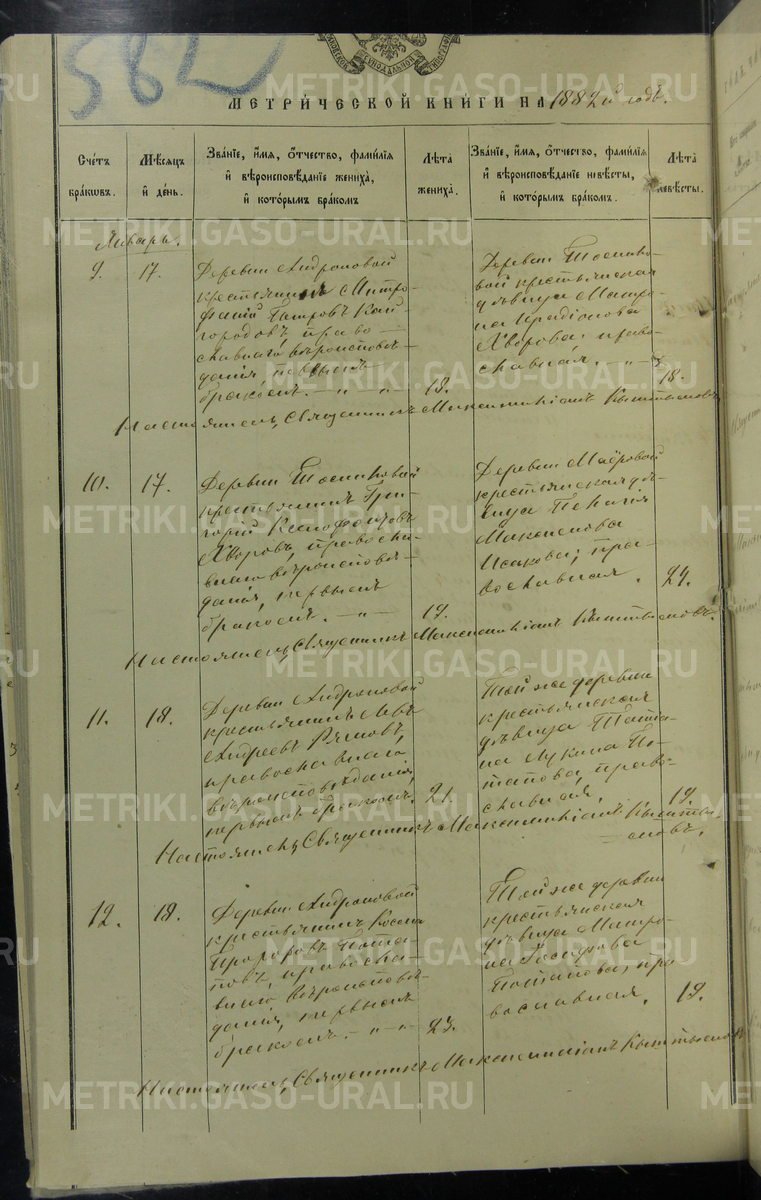 582
МЕТРИЧЕСКОЙ КНИГИ НА 1882й годъ.
Счетъ браковъ.
Мѣсяцъ и день.
Званіе, имя, отчество, фамилія и вѣроисповѣданіе жениха, и которымъ бракомъ
Лѣта жениха.
Званіе, имя, отчество, фамилія и вѣроисповѣданіе невѣсты, и которымъ бракомъ.
Лѣта невѣсты.
Январь.
9.
17.
Деревни Андроновой
крестьянинъ Митро-
фаній Петровъ Кай-
городовъ, право-
славнаго вѣроисповѣ-
данія, первымъ
бракомъ.
18.
Деревни
крестьянская
дѣвица Матро-
на Иродіонова
Хворова, право-
славная.
18.
Настоятель, Священникъ Максимиліанъ
10.
17.
Деревни
крестьянинъ Гри-
горій Ксенофонтовъ
Хворовъ, правосла-
внаго вѣроисповѣ-
данія, первымъ
бракомъ.
19.
Деревни Мауровой
крестьянская дѣ-
вица Пелагія
Максимова
Исакова, пра-
вославная.
24.
Настоятель, Священникъ Максимиліанъ
11.
18.
Деревни Андроновой
крестьянинъ Левъ
Андреевъ
православнаго
вѣроисповѣданія,
первымъ бракомъ.
21.
Той же деревни
крестьянская
дѣвица Татіа-
на Лукина По-
тапова, право-
славная.
19.
Настоятель, Священникъ Максимиліанъ
12.
18.
Деревни Андроновой
крестьянинъ Косма
Прохоровъ Пота-
повъ, правосла-
внаго вѣроисповѣ-
данія, первымъ
бракомъ.
23.
Той же деревни
крестьянская
дѣвица Матро-
на
Потапова, пра-
вославная.
19.
Настоятель, Священникъ Максимиліанъ
METRIKI.GASO-URAL.RU